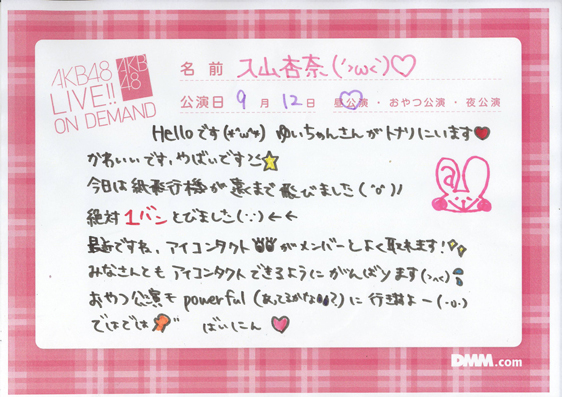 AKB48
LIVE!!
ON DEMAND
AKB
48
名前 入山杏奈(´>ω<`)♡
公演日 9月12日 昼公演・おやつ公演・夜公演
Helloです(*´ω`*) ゆいちゃんさんがトナリにいます♥
かわいいです。やばいです ☆
今日は紙飛行機が遠くまで飛びました(˚o˚)!
絶対1バンとびました(:) ← ←
最近ですね、アイコンタクト がメンバーとよく取れます!
みなさんともアイコンタクトできるようにがんばります(>ㅅ<)
おやつ公演もpowerful(あってるかな ?)に行きますよー(·o·)
ではでは ばいにん ♥
DMM.com